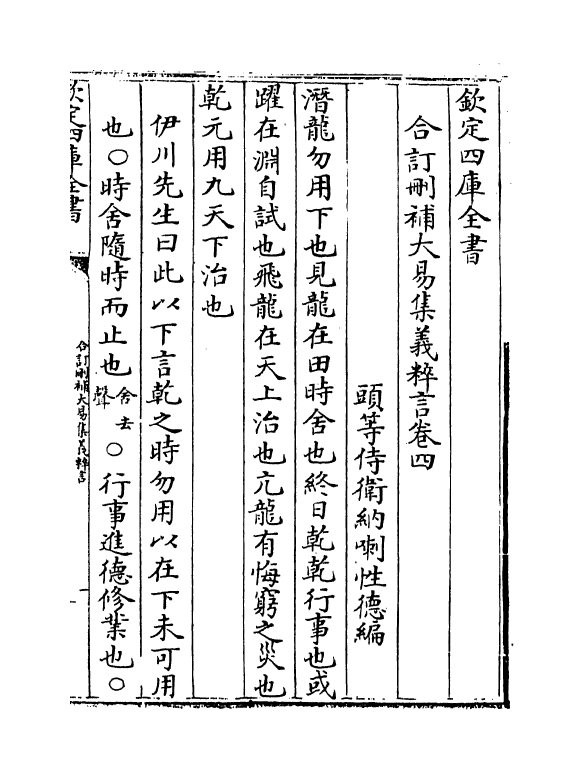 欽定四庫全書
合訂刪補大易集義粹言卷四
頭等侍衛納喇性德編
潛龍勿用下也見龍在田時舍也終日乾乾行事也或
躍在淵自試也飛龍在天上治也亢龍有悔窮之災也
乾元用九天下治也
伊川先生曰此以下言乾之時勿用以在下未可用
也○時舍隨時而止也舍去聲○行事進德修業也○
欽定四庫全書
合訂刪補大易集義粹言
一